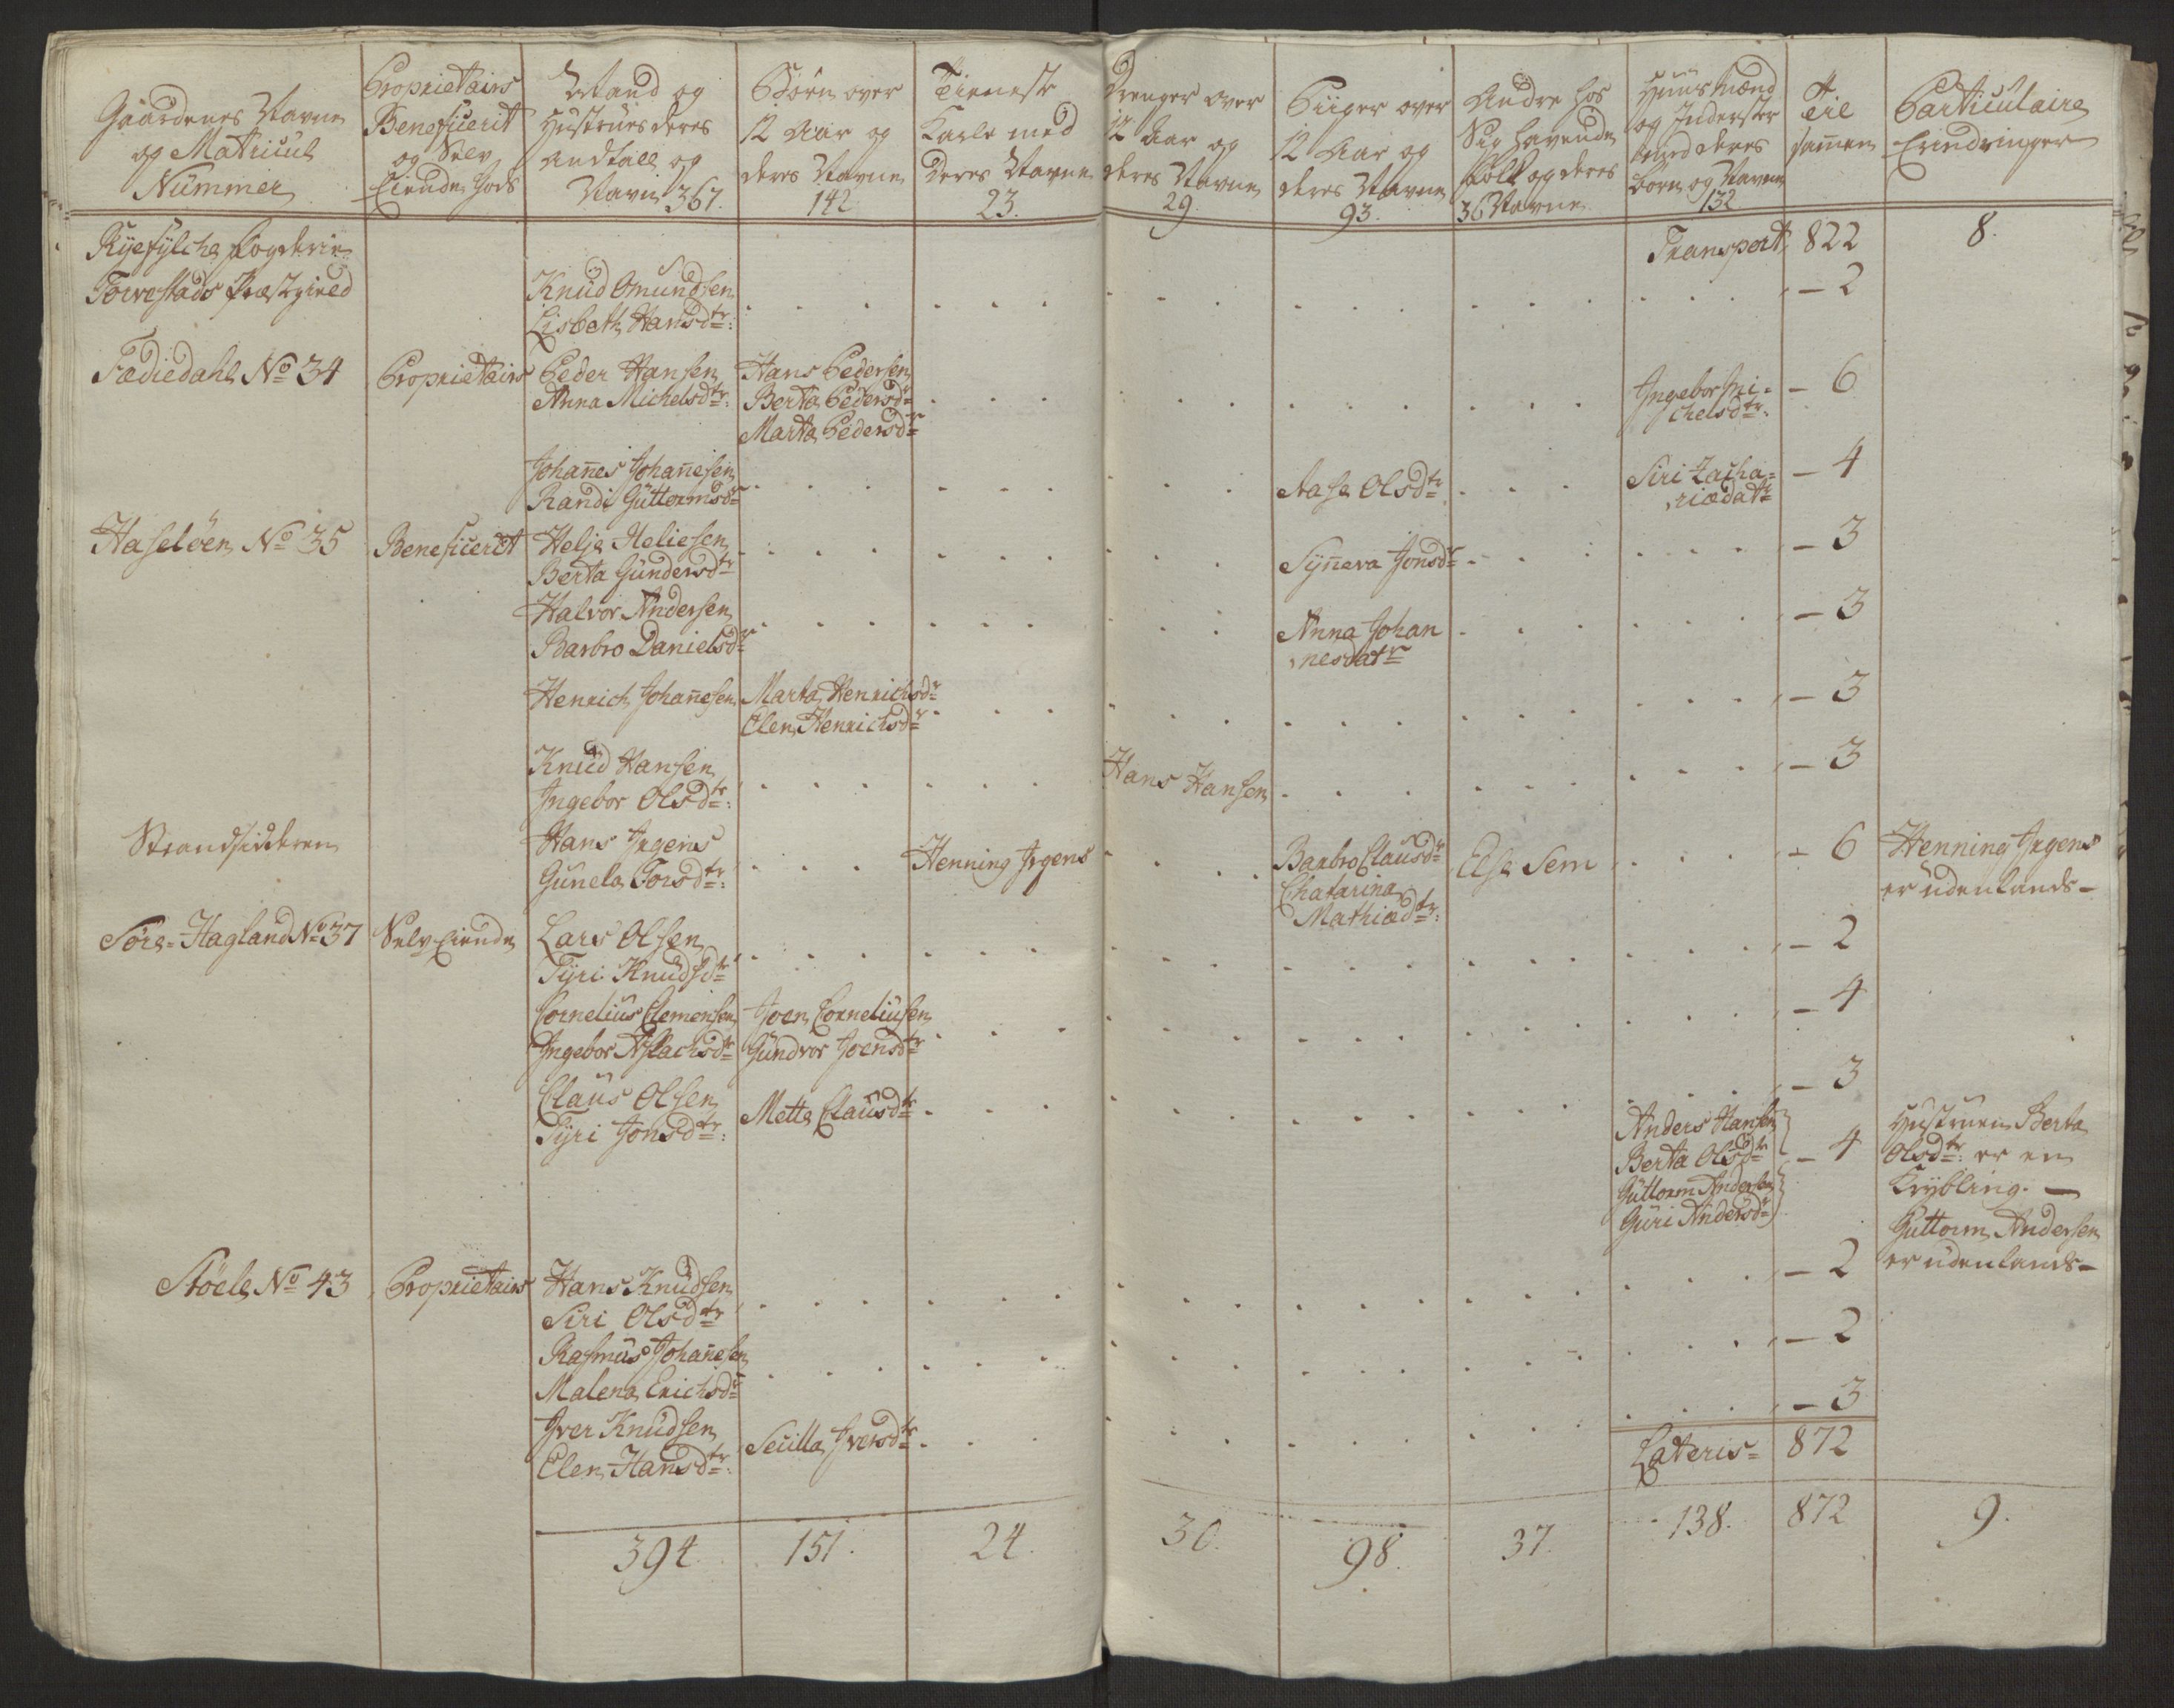 Gaardenes Navne
og Matricul
Nummer
Proprietairs
Beneficerit
og Selv
Eiende Gods
Mand og
Hustrues deres
Andtall og
Navn 367.
Börn over
12 Aar og
deres Navne
142
Tieneste
Karle med
Deres Navne
23.
Drenger over
12 Aar og
deres Navne
29.
Piiger over
12 Aar og
deres Navne
93.
Andre hos
Sig havende
Folk og deres
36 Navne
Huusmænd
og Inderster
med deres
börn og Navne
132
Til
sam̅en
Particulaire
Erindringer
Ryefylche Fogderie
Torvestads Præstgield
Transport 822
8.
Knud Omundsen
Lisbeth Hansdtr:
- 2
Fædiedahl No 34
Proprietairs
Peder Hansen
Anna Michelsdtr:
Hans Pedersen
Berta Pedersdr
Marta Pedersdr
Ingebor Mi=
chelsdtr:
- 6
Johan̅es Johan̅esen
Randi Guttormsdr
Aasa Olsdtr
Siri Zacha=
riædatr
- 4
Haselöen No 35
Beneficerit
Helje Heliesen
Berta Gundersdtr
Syn̅eva Jonsdr
- 3
Halvor Andersen
Barbro Danielsdr
Anna Johan
nesdatr
- 3
Henrich Johan̅esen
Marta Henrichsdr
Elen Henrichsdr
- 3
Knud Hansen
Ingebor Olsdtr:
Hans Hansen
- 3
Strandsidderen
Hans Jrgens
Gunela Torsdtr:
Henning Jrgens
Barbro Clausdr
Chatarina
Mathiædtr:
Else Sem
- 6
Henning Jrgens
er udenlands -
Söre-Hagland No 37
Selv Eiende
Lars Olsen
Tyri Knudsdtr
- 2
Cornelius Clemensen
Ingebor Aslachsdr
Joen Corneliusen
Gundvor Joensdtr
- 4
Claus Olsen
Tyri Jonsdtr:
Mette Clausdtr
- 3
Anders Hansen
Berta Olsdtr
Guttorm Andersen
Guri Andersdr
- 4
Hustruen Berta
Olsdtr: er en
Krybling. -
Guttorm Andersen
er udenlands -
Stöele No 43
Proprietairs
Hans Knudsen
Siri Olsdtr
- 2
Rasmus Johan̅esen
Malena Erichsdr
- 2
Iver Knudsen
Elen Hansdtr:
Scuilla Iversdtr
- 3
Lateris= 872
394
151.
24.
30.
98.
37.
138.
872
9.